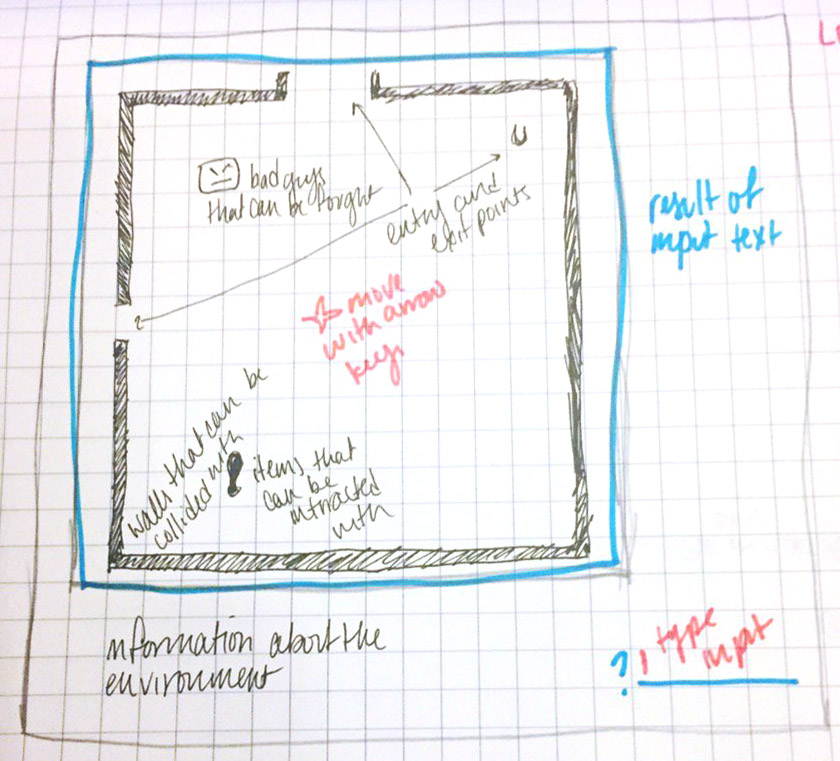 bad guys
that can be fought
entry and
exit points
result of
input text
move
with arrow
keys
walls that can be
collided with
items that
can be
intracted
with
information about the
environment
? type
input